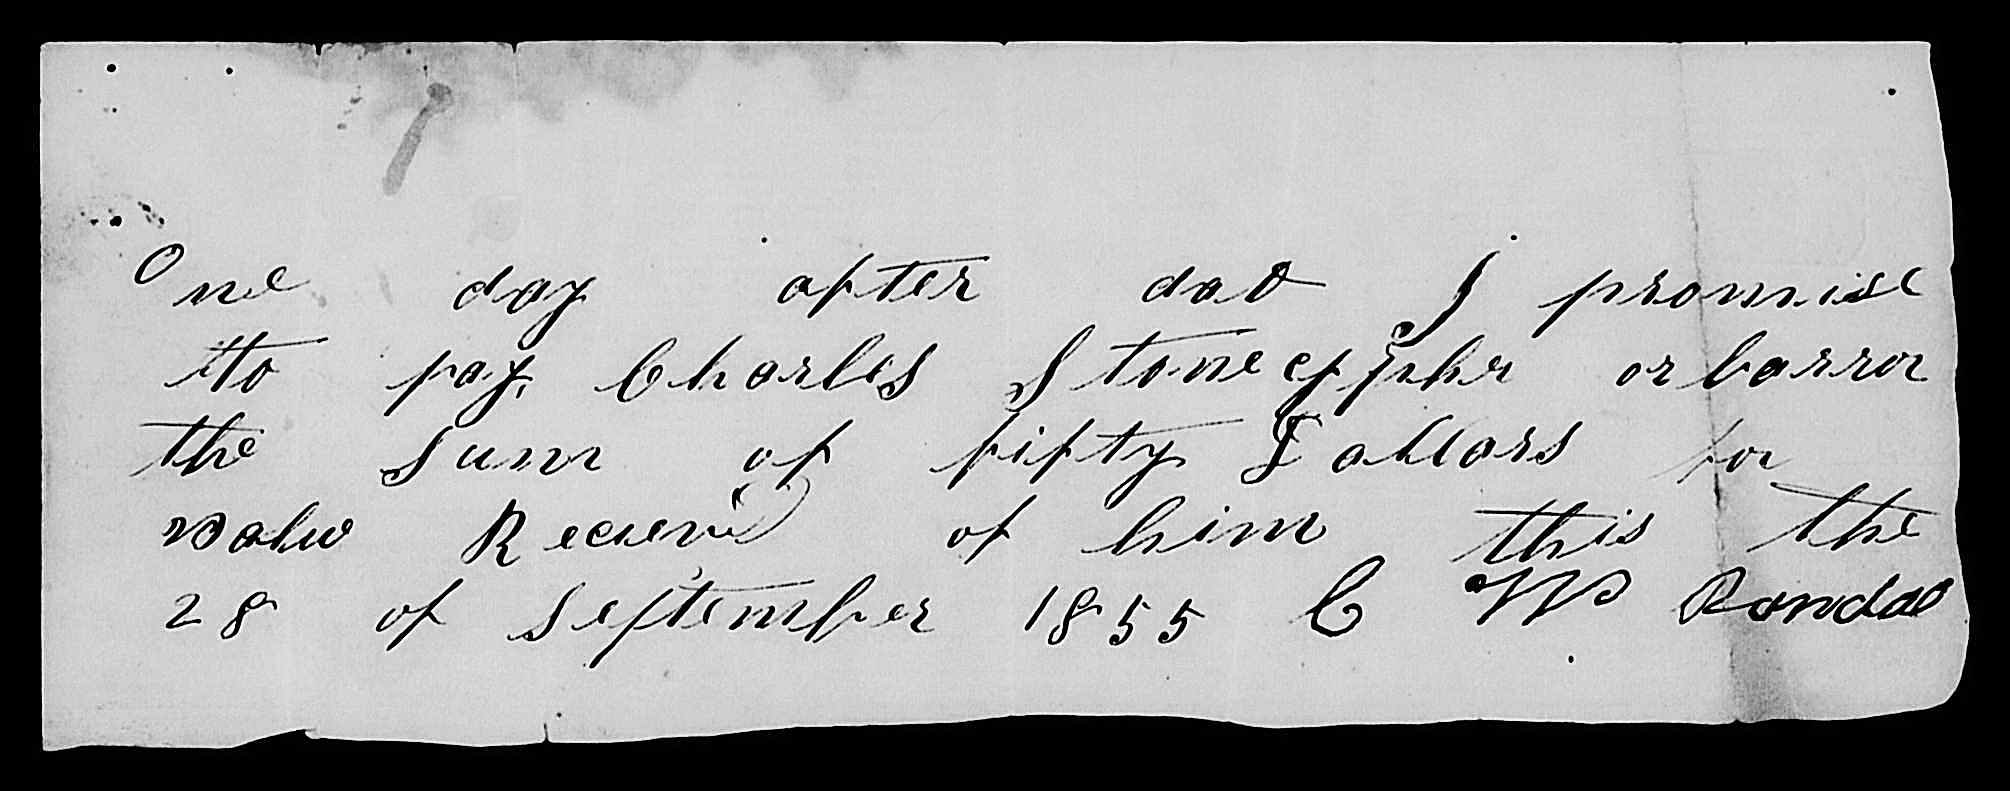 One day after dat I promise
to pay Charles Stonecypher or barror
the Sum of fifty Dollars for
valu Received of him this the
28 of September 1855 C W Randal